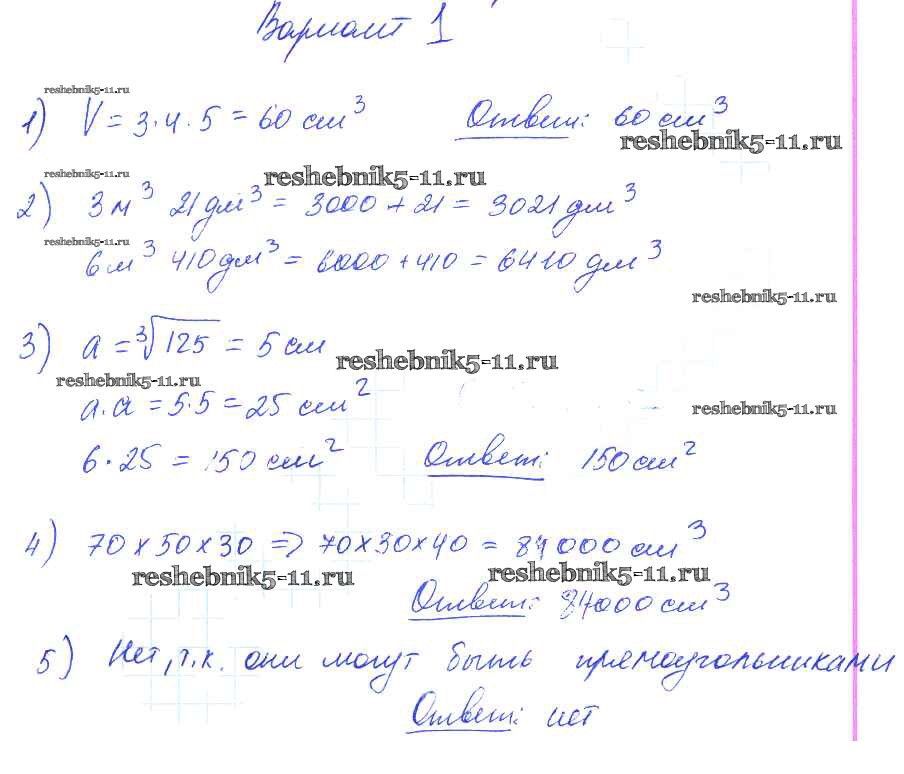 Вариант 1
reshebnik5-11.ru
1) V = 3·4·5 = 60 см³ Ответ: 60 см³
reshebnik5-11.ru
reshebnik5-11.ru
reshebnik5-11.ru
2) 3 м³ 21 дм³ = 3000 + 21 = 3021 дм³
reshebnik5-11.ru
6 м³ 410 дм³ = 6000 + 410 = 6410 дм³
reshebnik5-11.ru
3) a = ³√125 = 5 см
reshebnik5-11.ru
reshebnik5-11.ru
a·a = 5·5 = 25 см²
reshebnik5-11.ru
6·25 = 150 см² Ответ: 150 см²
4) 70×50×30 => 70×30×40 = 84000 см³
reshebnik5-11.ru
reshebnik5-11.ru
Ответ: 84000 см³
5) Нет, т.к. они могут быть прямоугольниками
Ответ: нет